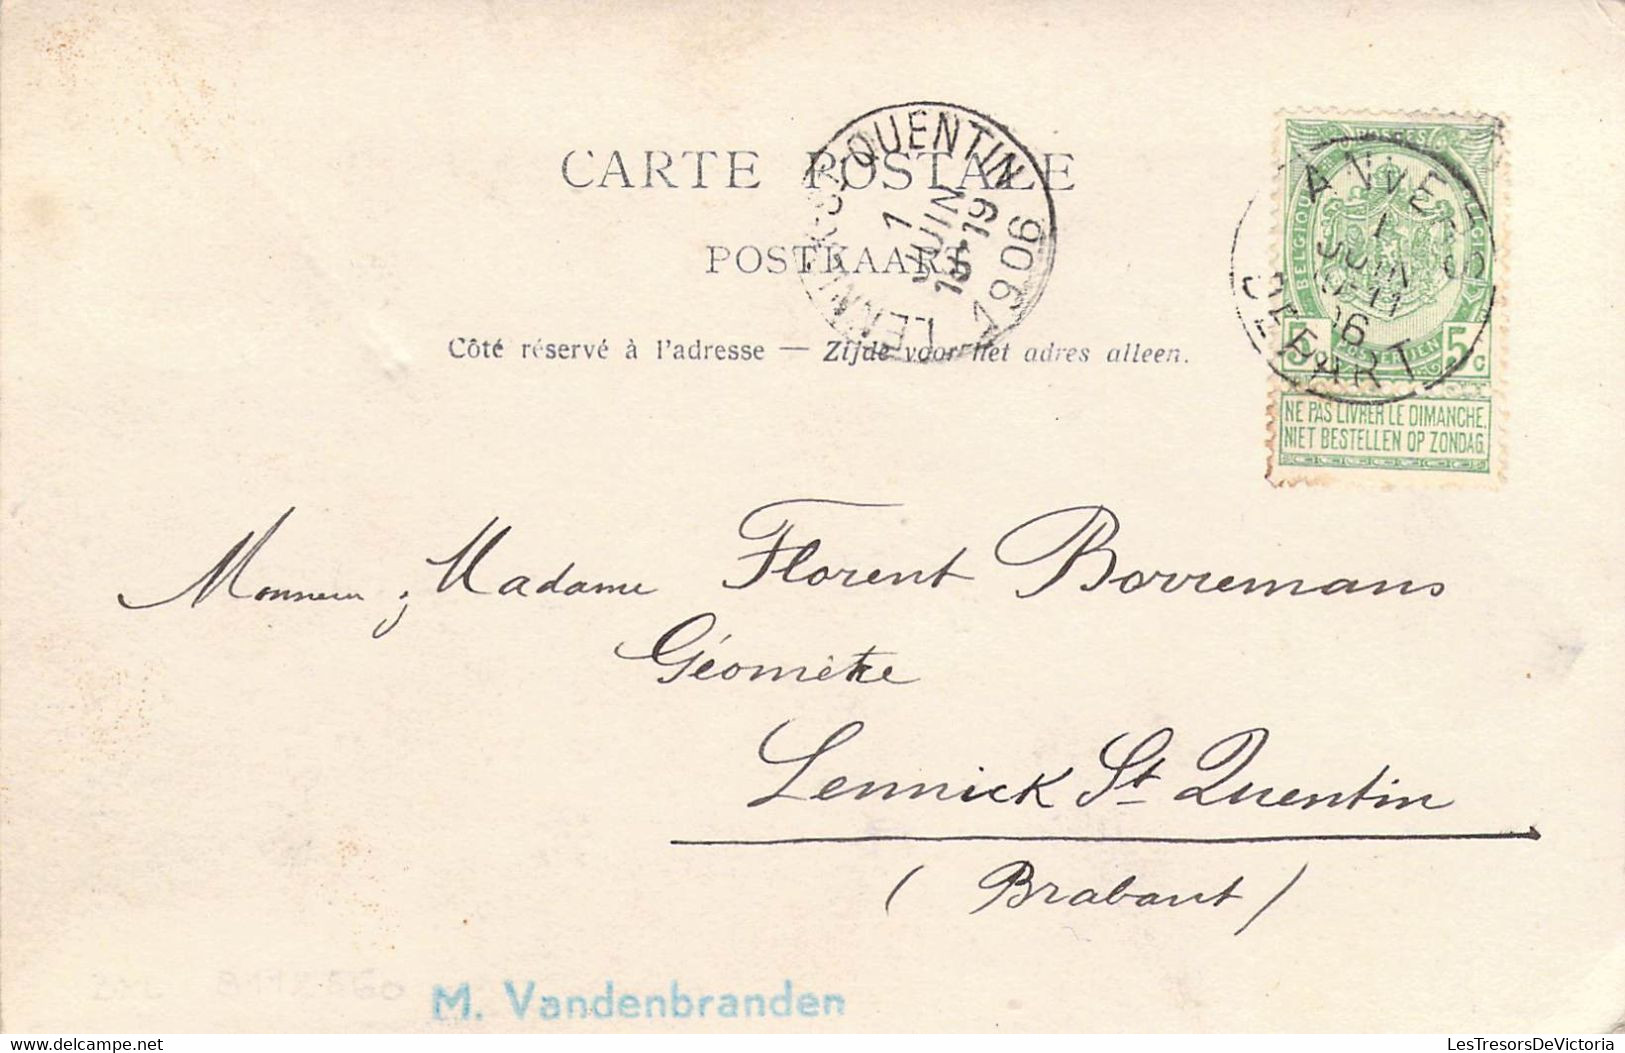 CARTE POSTALE
POSTKAART
Côté réservé à l'adresse — Zijde voor het adres alleen.
LENNICK-ST-QUENTIN
1
JUIN
18-19
1906
POSTES
BELGIQUE
BELGIË
POSTERIJEN
5c 5c
ANVERS
1
JUIN
10-11
06
DEPART
NE PAS LIVRER LE DIMANCHE.
NIET BESTELLEN OP ZONDAG.
Monsieur & Madame Florent Borremans
Géomètre
Lennick St Quentin
(Brabant)
M. Vandenbranden
LesTresorsDeVictoria